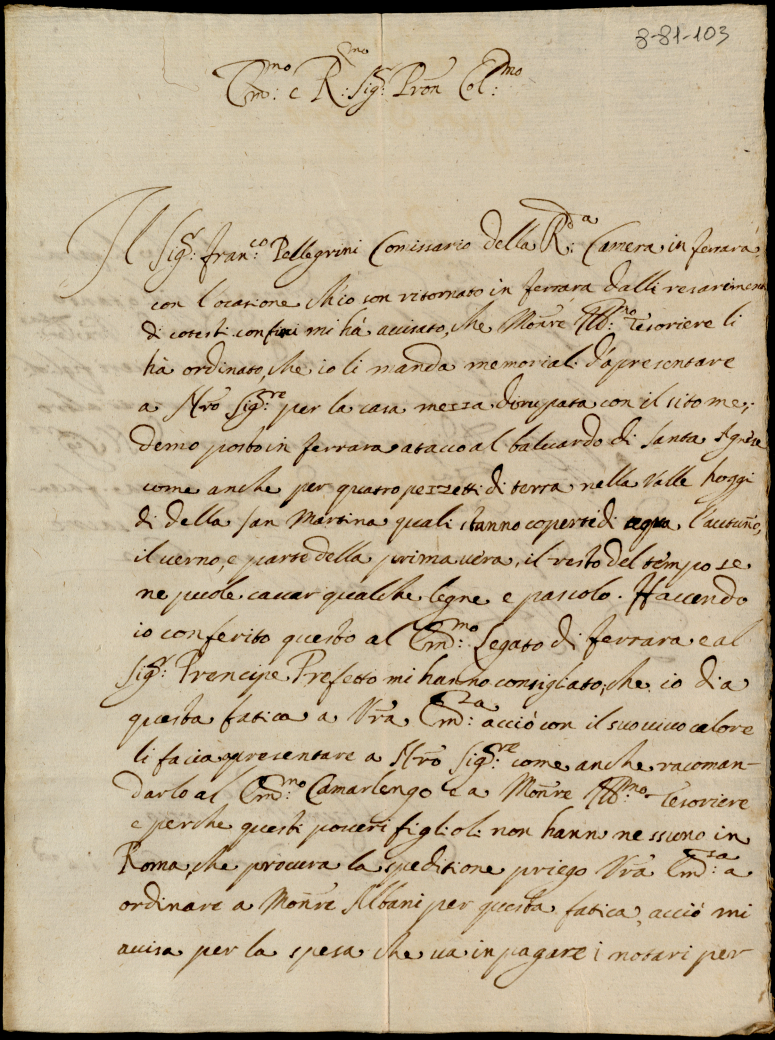 8-81-103
Em:mo e R:mo Sig:r Pron Col:mo
Il Sig:r Fran:co Pellegrini Comissario della R:da Camera in ferrara
con l'ocasione ch'io son ritornato in ferrara dalli resarcimenti
di cotesti confini mi hà avisato, che Monre Ill:mo Tesoriere li
hà ordinato, che io li manda memoriali d'apresentare
a Nro Sig:re per la casa mezza dirupata con il sito me,,
demo posto in ferrara ataco al baluardo di Santa Agnese
come anche per quatro pezzetti di terra nella Valle hoggi
di della San Martina quali stanno coperti di aqua l'autuño,
il verno, e parte della prima vera, il resto del tempo se
ne puole cavar qualche legne e pascolo. Havendo
io conferito questo al Em:mo Legato di ferrara e al
Sig:r Prencipe Prefetto mi hanno consigliato, che io dia
questa fatica a Vra Em:za acciò con il suo vivo calore
li facia apresentare a Nro Sig:re come anche racoman-
darlo al Em:mo Camarlengo e a Monre Ill:mo Tesoriere
e perche questi poveri figlioli non hann nessuno in
Roma, che procura la speditione priego Vra Em:za a
ordinare a Monre Albani per questa fatica, acciò mi
avisa per la spesa che va in pagare i notari per